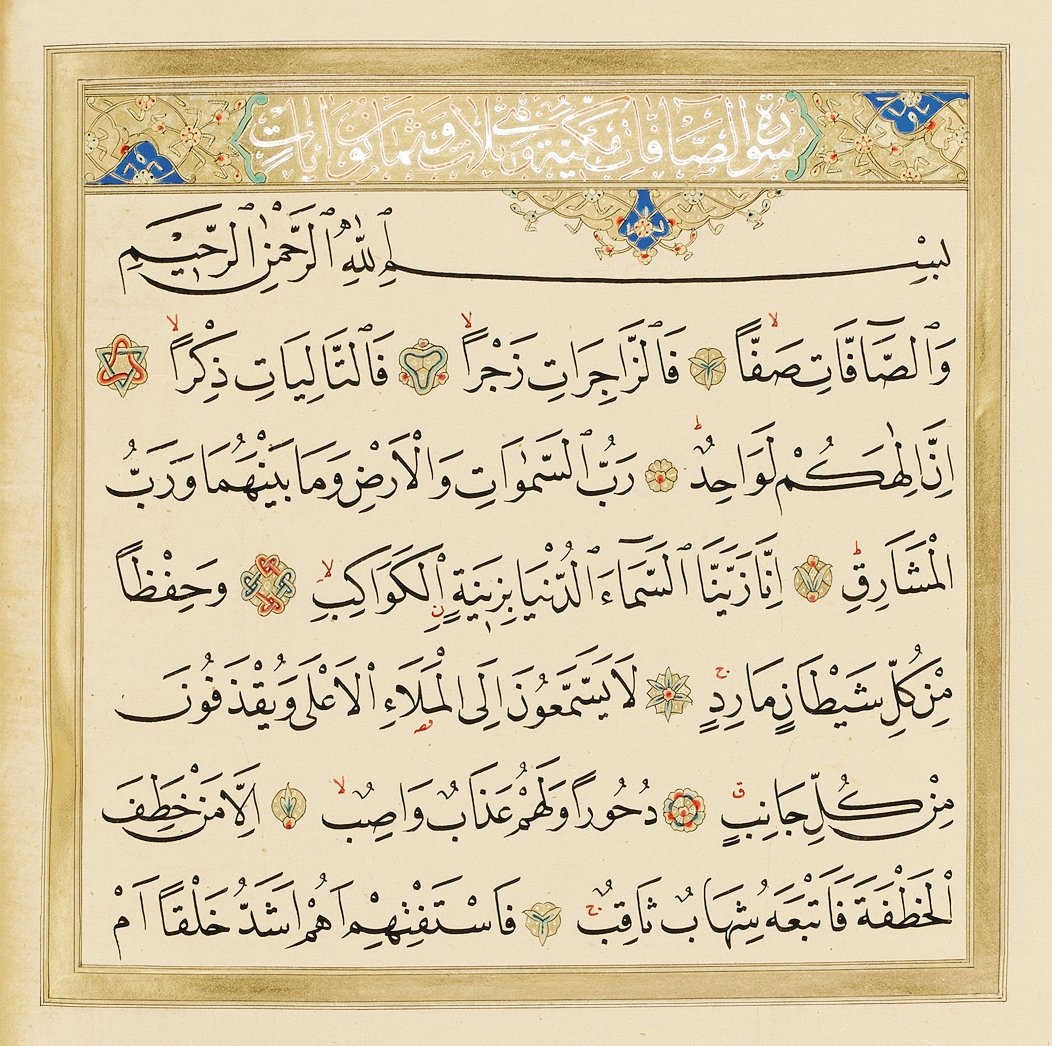 سُورَةُ الصَّافَّاتِ مَكِّيَّةٌ وَهِيَ ثَلَاثٌ وَثَمَانُونَ آيَاتٍ
بِسْمِ اللّٰهِ الرَّحْمٰنِ الرَّحِيمِ
وَالصَّٓافَّاتِ صَفًّاۙ فَالزَّاجِرَاتِ زَجْرًاۙ فَالتَّالِيَاتِ ذِكْرًاۙ
اِنَّ اِلٰهَكُمْ لَوَاحِدٌۜ رَبُّ السَّمٰوَاتِ وَالْاَرْضِ وَمَا بَيْنَهُمَا وَرَبُّ
الْمَشَارِقِۜ اِنَّا زَيَّنَّا السَّمَٓاءَ الدُّنْيَا بِزِينَةٍۨ الْكَوَاكِبِۙ وَحِفْظًا
مِنْ كُلِّ شَيْطَانٍ مَارِدٍۚ لَا يَسَّمَّعُونَ اِلَى الْمَلَاءِ الْاَعْلٰى وَيُقْذَفُونَ
مِنْ كُلِّ جَانِبٍۗ دُحُورًا وَلَهُمْ عَذَابٌ وَاصِبٌۙ اِلَّا مَنْ خَطِفَ
الْخَطْفَةَ فَاَتْبَعَهُ شِهَابٌ ثَاقِبٌۚ فَاسْتَفْتِهِمْ اَهُمْ اَشَدُّ خَلْقًا اَمْ